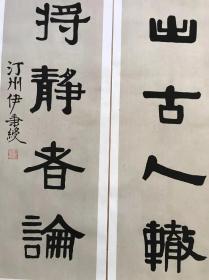 出古人轍
將靜者論
汀州伊秉綬